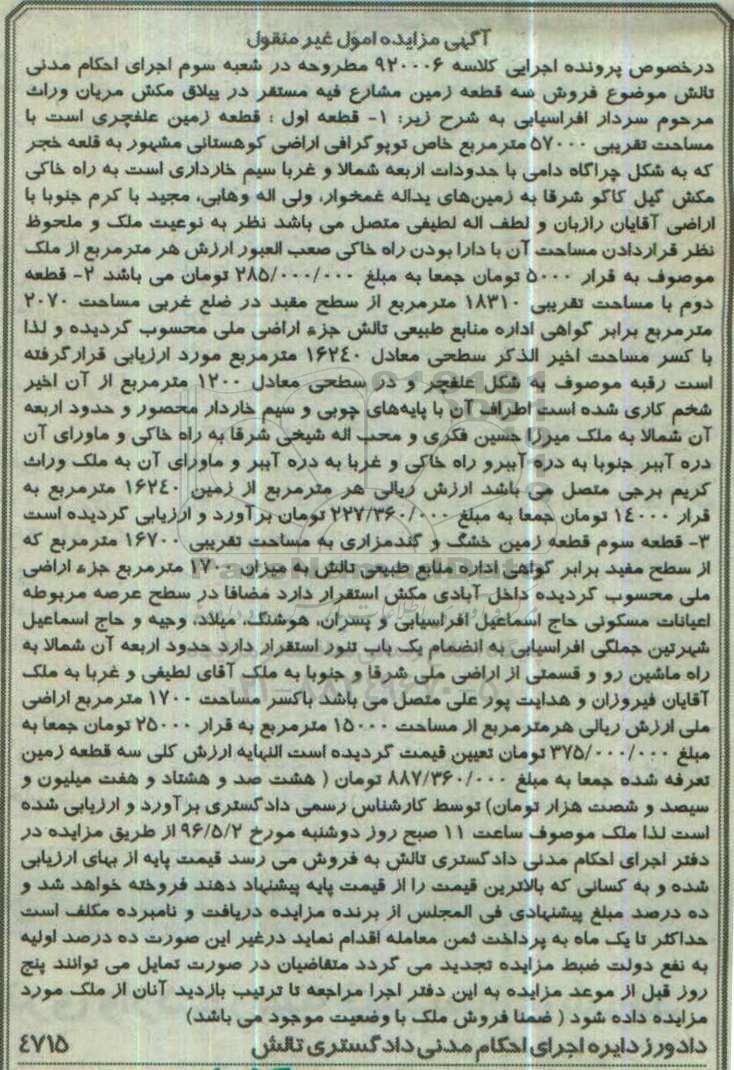 آگهی مزایده اموال غیر منقول
درخصوص پرونده اجرایی کلاسه ۹۲۰۰۰۶ مطروحه در شعبه سوم اجرای احکام مدنی
تالش موضوع فروش سه قطعه زمین مشارع فیه مستقر در ییلاق مکش مریان وراث
مرحوم سردار افراسیابی به شرح زیر: ۱- قطعه اول : قطعه زمین علفچری است با
مساحت تقریبی ۵۷۰۰۰ مترمربع خاص توپوگرافی اراضی کوهستانی مشهور به قلعه خجر
که به شکل چراگاه دامی با حدودات اربعه شمالا و غربا سیم خارداری است به راه خاکی
مکش گیل کاکو شرقا به زمین‌های یداله غمخوار، ولی اله وهابی، مجید با کرم جنوبا با
اراضی آقایان رازبان و لطف اله لطیفی متصل می باشد نظر به نوعیت ملک و ملحوظ
نظر قراردادن مساحت آن با دارا بودن راه خاکی صعب العبور ارزش هر مترمربع از ملک
موصوف به قرار ۵۰۰۰ تومان جمعا به مبلغ ۲۸۵/۰۰۰/۰۰۰ تومان می باشد ۲- قطعه
دوم با مساحت تقریبی ۱۸۳۱۰ مترمربع از سطح مقید در ضلع غربی مساحت ۲۰۷۰
مترمربع برابر گواهی اداره منابع طبیعی تالش جزء اراضی ملی محسوب گردیده و لذا
با کسر مساحت اخیر الذکر سطحی معادل ۱۶۲۴۰ مترمربع مورد ارزیابی قرارگرفته
است رقبه موصوف به شکل علفچر و در سطحی معادل ۱۲۰۰ مترمربع از آن اخیر
شخم کاری شده است اطراف آن با پایه‌های چوبی و سیم خاردار محصور و حدود اربعه
آن شمالا به ملک میرزا حسین فکری و محب اله شیخی شرقا به راه خاکی و ماورای آن
دره آببر جنوبا به دره آببرو راه خاکی و غربا به دره آببر و ماورای آن به ملک وراث
کریم برجی متصل می باشد ارزش ریالی هر مترمربع از زمین ۱۶۲۴۰ مترمربع به
قرار ۱۴۰۰۰ تومان جمعا به مبلغ ۲۲۷/۳۶۰/۰۰۰ تومان برآورد و ارزیابی گردیده است
۳- قطعه سوم قطعه زمین خشگ و گندمزاری به مساحت تقریبی ۱۶۷۰۰ مترمربع که
از سطح مفید برابر گواهی اداره منابع طبیعی تالش به میزان ۱۷۰۰ مترمربع جزء اراضی
ملی محسوب گردیده داخل آبادی مکش استقرار دارد مضافا در سطح عرصه مربوطه
اعیانات مسکونی حاج اسماعیل افراسیابی و پسران، هوشنگ، میلاد، وجیه و حاج اسماعیل
شهرتین جملگی افراسیابی به انضمام یک باب تنور استقرار دارد حدود اربعه آن شمالا به
راه ماشین رو و قسمتی از اراضی ملی شرقا و جنوبا به ملک آقای لطیفی و غربا به ملک
آقایان فیروزان و هدایت پور علی متصل می باشد باکسر مساحت ۱۷۰۰ مترمربع اراضی
ملی ارزش ریالی هرمترمربع از مساحت ۱۵۰۰۰ مترمربع به قرار ۲۵۰۰۰ تومان جمعا به
مبلغ ۳۷۵/۰۰۰/۰۰۰ تومان تعیین قیمت گردیده است النهایه ارزش کلی سه قطعه زمین
تعرفه شده جمعا به مبلغ ۸۸۷/۳۶۰/۰۰۰ تومان ( هشت صد و هشتاد و هفت میلیون و
سیصد و شصت هزار تومان) توسط کارشناس رسمی دادگستری برآورد و ارزیابی شده
است لذا ملک موصوف ساعت ۱۱ صبح روز دوشنبه مورخ ۹۶/۵/۲ از طریق مزایده در
دفتر اجرای احکام مدنی دادگستری تالش به فروش می رسد قیمت پایه از بهای ارزیابی
شده و به کسانی که بالاترین قیمت را از قیمت پایه پیشنهاد دهند فروخته خواهد شد و
ده درصد مبلغ پیشنهادی فی المجلس از برنده مزایده دریافت و نامبرده مکلف است
حداکثر تا یک ماه به پرداخت ثمن معامله اقدام نماید درغیر این صورت ده درصد اولیه
به نفع دولت ضبط مزایده تجدید می گردد متقاضیان در صورت تمایل می توانند پنج
روز قبل از موعد مزایده به این دفتر اجرا مراجعه تا ترتیب بازدید آنان از ملک مورد
مزایده داده شود ( ضمنا فروش ملک با وضعیت موجود می باشد)
دادورز دایره اجرای احکام مدنی دادگستری تالش ۴۷۱۵